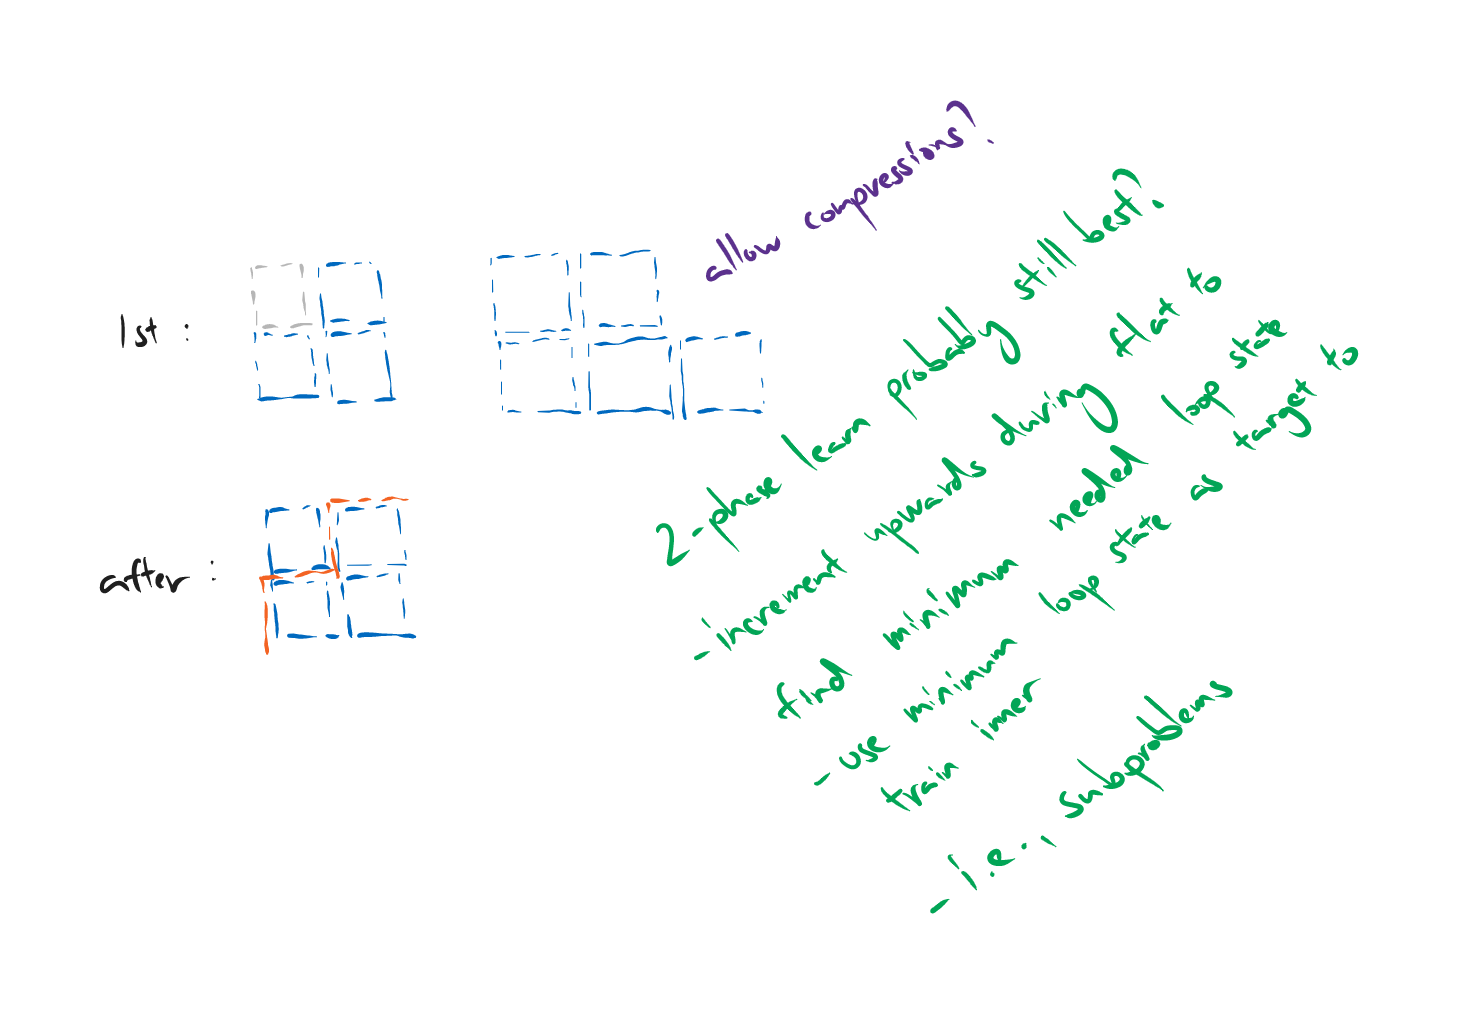 allow compressions?
1st :
after :
2-phase learn probably still best?
- increment upwards during flat to
find minimum needed loop state
- use minimum loop state as target to
train inner
- i.e., subproblems